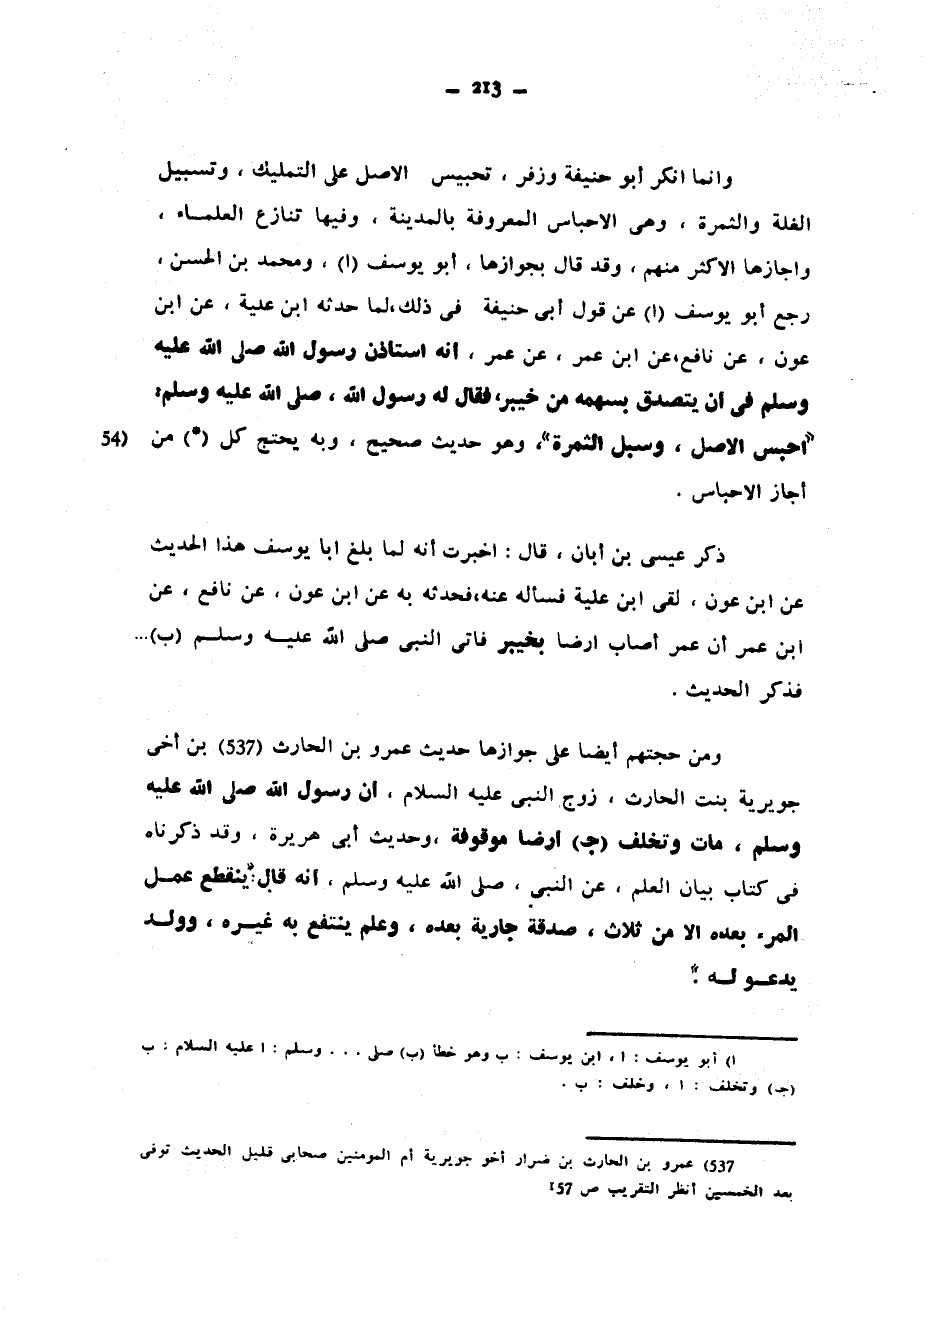 — 213 —
وانما انكر أبو حنيفة وزفر ، تحبيس الاصل على التمليك ، وتسبيل
الغلة والثمرة ، وهى الاحباس المعروفة بالمدينة ، وفيها تنازع العلماء ،
واجازها الاكثر منهم ، وقد قال بجوازها ، أبو يوسف (ا) ، ومحمد بن الحسن ،
رجع أبو يوسف (ا) عن قول أبى حنيفة فى ذلك،لما حدثه ابن علية ، عن ابن
عون ، عن نافع،عن ابن عمر ، عن عمر ، أنه استاذن رسول الله صلى الله عليه
وسلم فى أن يتصدق بسهمه من خيبر، فقال له رسول الله ، صلى الله عليه وسلم:
«احبس الاصل ، وسبل الثمرة»، وهو حديث صحيح ، وبه يحتج كل (*) من 54)
أجاز الاحباس .
ذكر عيسى بن أبان ، قال : اخبرت أنه لما بلغ ابا يوسف هذا الحديث
عن ابن عون ، لقى ابن علية فسأله عنه،فحدثه به عن ابن عون ، عن نافع ، عن
ابن عمر أن عمر أصاب ارضا بخيبر فاتى النبى صلى الله عليه وسلم (ب)...
فذكر الحديث .
ومن حجتهم أيضا على جوازها حديث عمرو بن الحارث (537) بن أخى
جويرية بنت الحارث ، زوج النبى عليه السلام ، أن رسول الله صلى الله عليه
وسلم ، مات وتخلف (جـ) ارضا موقوفة ،وحديث أبى هريرة ، وقد ذكرناه
فى كتاب بيان العلم ، عن النبي ، صلى الله عليه وسلم ، أنه قال:«ينقطع عمل
المرء بعده الا من ثلاث ، صدقة جارية بعده ، وعلم ينتفع به غيره ، وولد
يدعو له .»
ا) أبو يوسف : ا ، ابن يوسف : ب وهو خطأ (ب) صلى . . . وسلم : ا عليه السلام : ب
(جـ) وتخلف : ا ، وخلف : ب .
537) عمرو بن الحارث بن ضرار أخو جويرية أم المومنين صحابى قليل الحديث توفى
بعد الخمسين أنظر التقريب ص 157